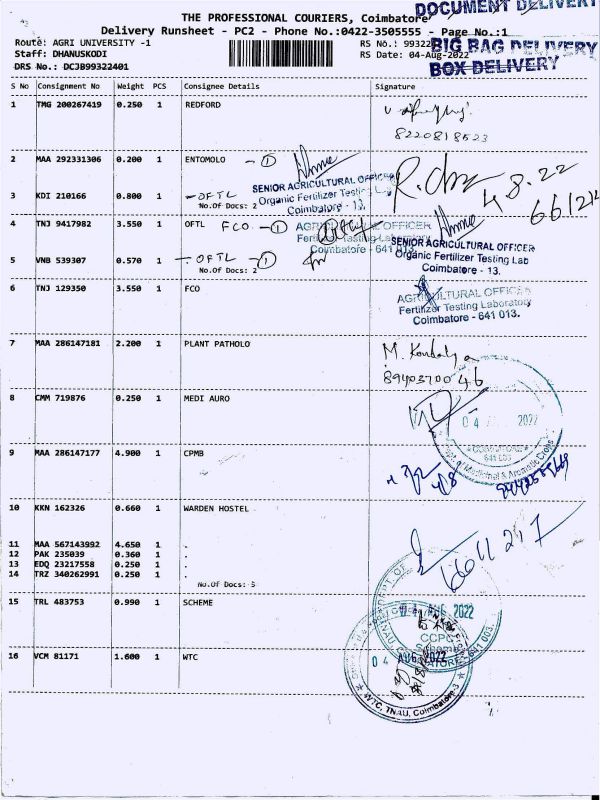 DOCUMENT DELIVERY
THE PROFESSIONAL COURIERS, Coimbatore
Delivery Runsheet - PC2 - Phone No.:0422-3505555 - Page No.:1
Route: AGRI UNIVERSITY -1
RS No.: 99322
BIG BAG DELIVERY
Staff: DHANUSKODI
RS Date: 04-Aug-2022
BOX DELIVERY
DRS No.: DCJB99322401
S No Consignment No Weight PCS Consignee Details Signature
1 TMG 200267419 0.250 1 REDFORD
8220818523
2 MAA 292331306 0.200 1 ENTOMOLO - 1
4.8.22
SENIOR AGRICULTURAL OFFICER
3 KDI 210166 0.800 1 - OFTL
Organic Fertilizer Testing Lab
No.Of Docs: 2
Coimbatore - 13.
4 TNJ 9417982 3.550 1 OFTL FCO - 1
Fertilizer Testing Laboratory
Coimbatore - 641 013.
SENIOR AGRICULTURAL OFFICER
Organic Fertilizer Testing Lab
Coimbatore - 13.
5 VNB 539307 0.570 1 - OFTL - 1
No.Of Docs: 2
6 TNJ 129350 3.550 1 FCO
AGRICULTURAL OFFICER
Fertilizer Testing Laboratory
Coimbatore - 641 013.
7 MAA 286147181 2.200 1 PLANT PATHOLO
8940370046
8 CMM 719876 0.250 1 MEDI AURO
04 2022
641 003
Dept. of Medicinal & Aromatic Crops
9 MAA 286147177 4.900 1 CPMB
4/8
10 KKN 162326 0.660 1 WARDEN HOSTEL
6611217
11 MAA 567143992 4.650 1 .
12 PAK 235039 0.360 1 .
13 EDQ 23217558 0.250 1 .
14 TRZ 340262991 0.250 1 .
No.Of Docs: 5
15 TRL 483753 0.990 1 SCHEME
AUG 2022
CCPC
Scheme
16 VCM 81171 1.600 1 WTC
04 AUG 2022
WTC, TNAU, Coimbatore-3